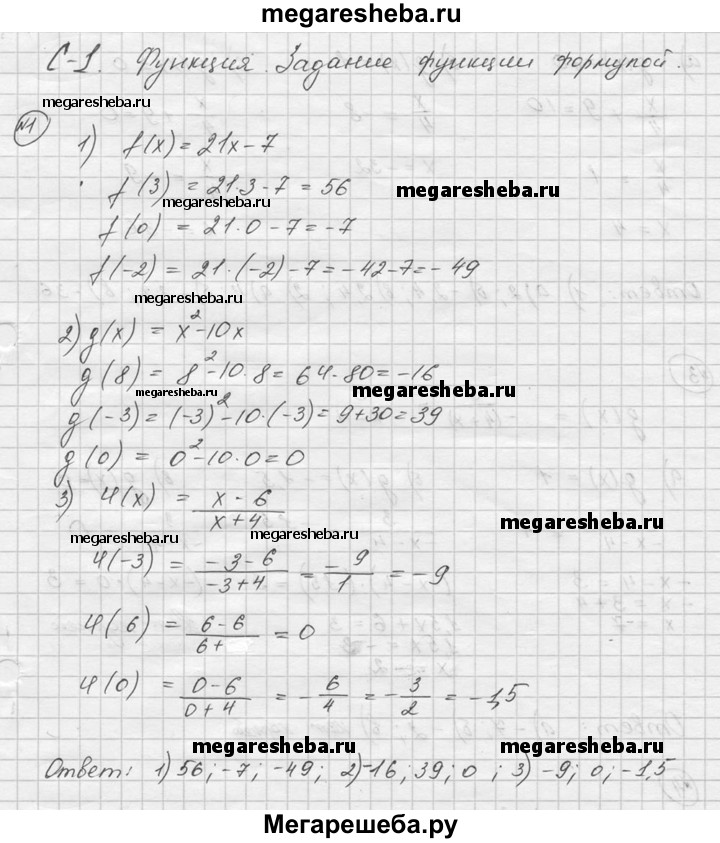 megaresheba.ru
С-1. Функция. Задание функции формулой.
megaresheba.ru
№1
1) f(x) = 21x - 7
f(3) = 21·3 - 7 = 56
megaresheba.ru
megaresheba.ru
f(0) = 21·0 - 7 = -7
f(-2) = 21·(-2) - 7 = -42 - 7 = -49
megaresheba.ru
2) g(x) = x² - 10x
g(8) = 8² - 10·8 = 64 - 80 = -16
megaresheba.ru
megaresheba.ru
g(-3) = (-3)² - 10·(-3) = 9 + 30 = 39
g(0) = 0² - 10·0 = 0
3) φ(x) = (x - 6)/(x + 4)
megaresheba.ru
megaresheba.ru
φ(-3) = (-3 - 6)/(-3 + 4) = -9/1 = -9
φ(6) = (6 - 6)/(6 +) = 0
φ(0) = (0 - 6)/(0 + 4) = -6/4 = -3/2 = -1,5
megaresheba.ru
megaresheba.ru
Ответ: 1) 56; -7; -49; 2) -16; 39; 0; 3) -9; 0; -1,5
Мегарешеба.ру